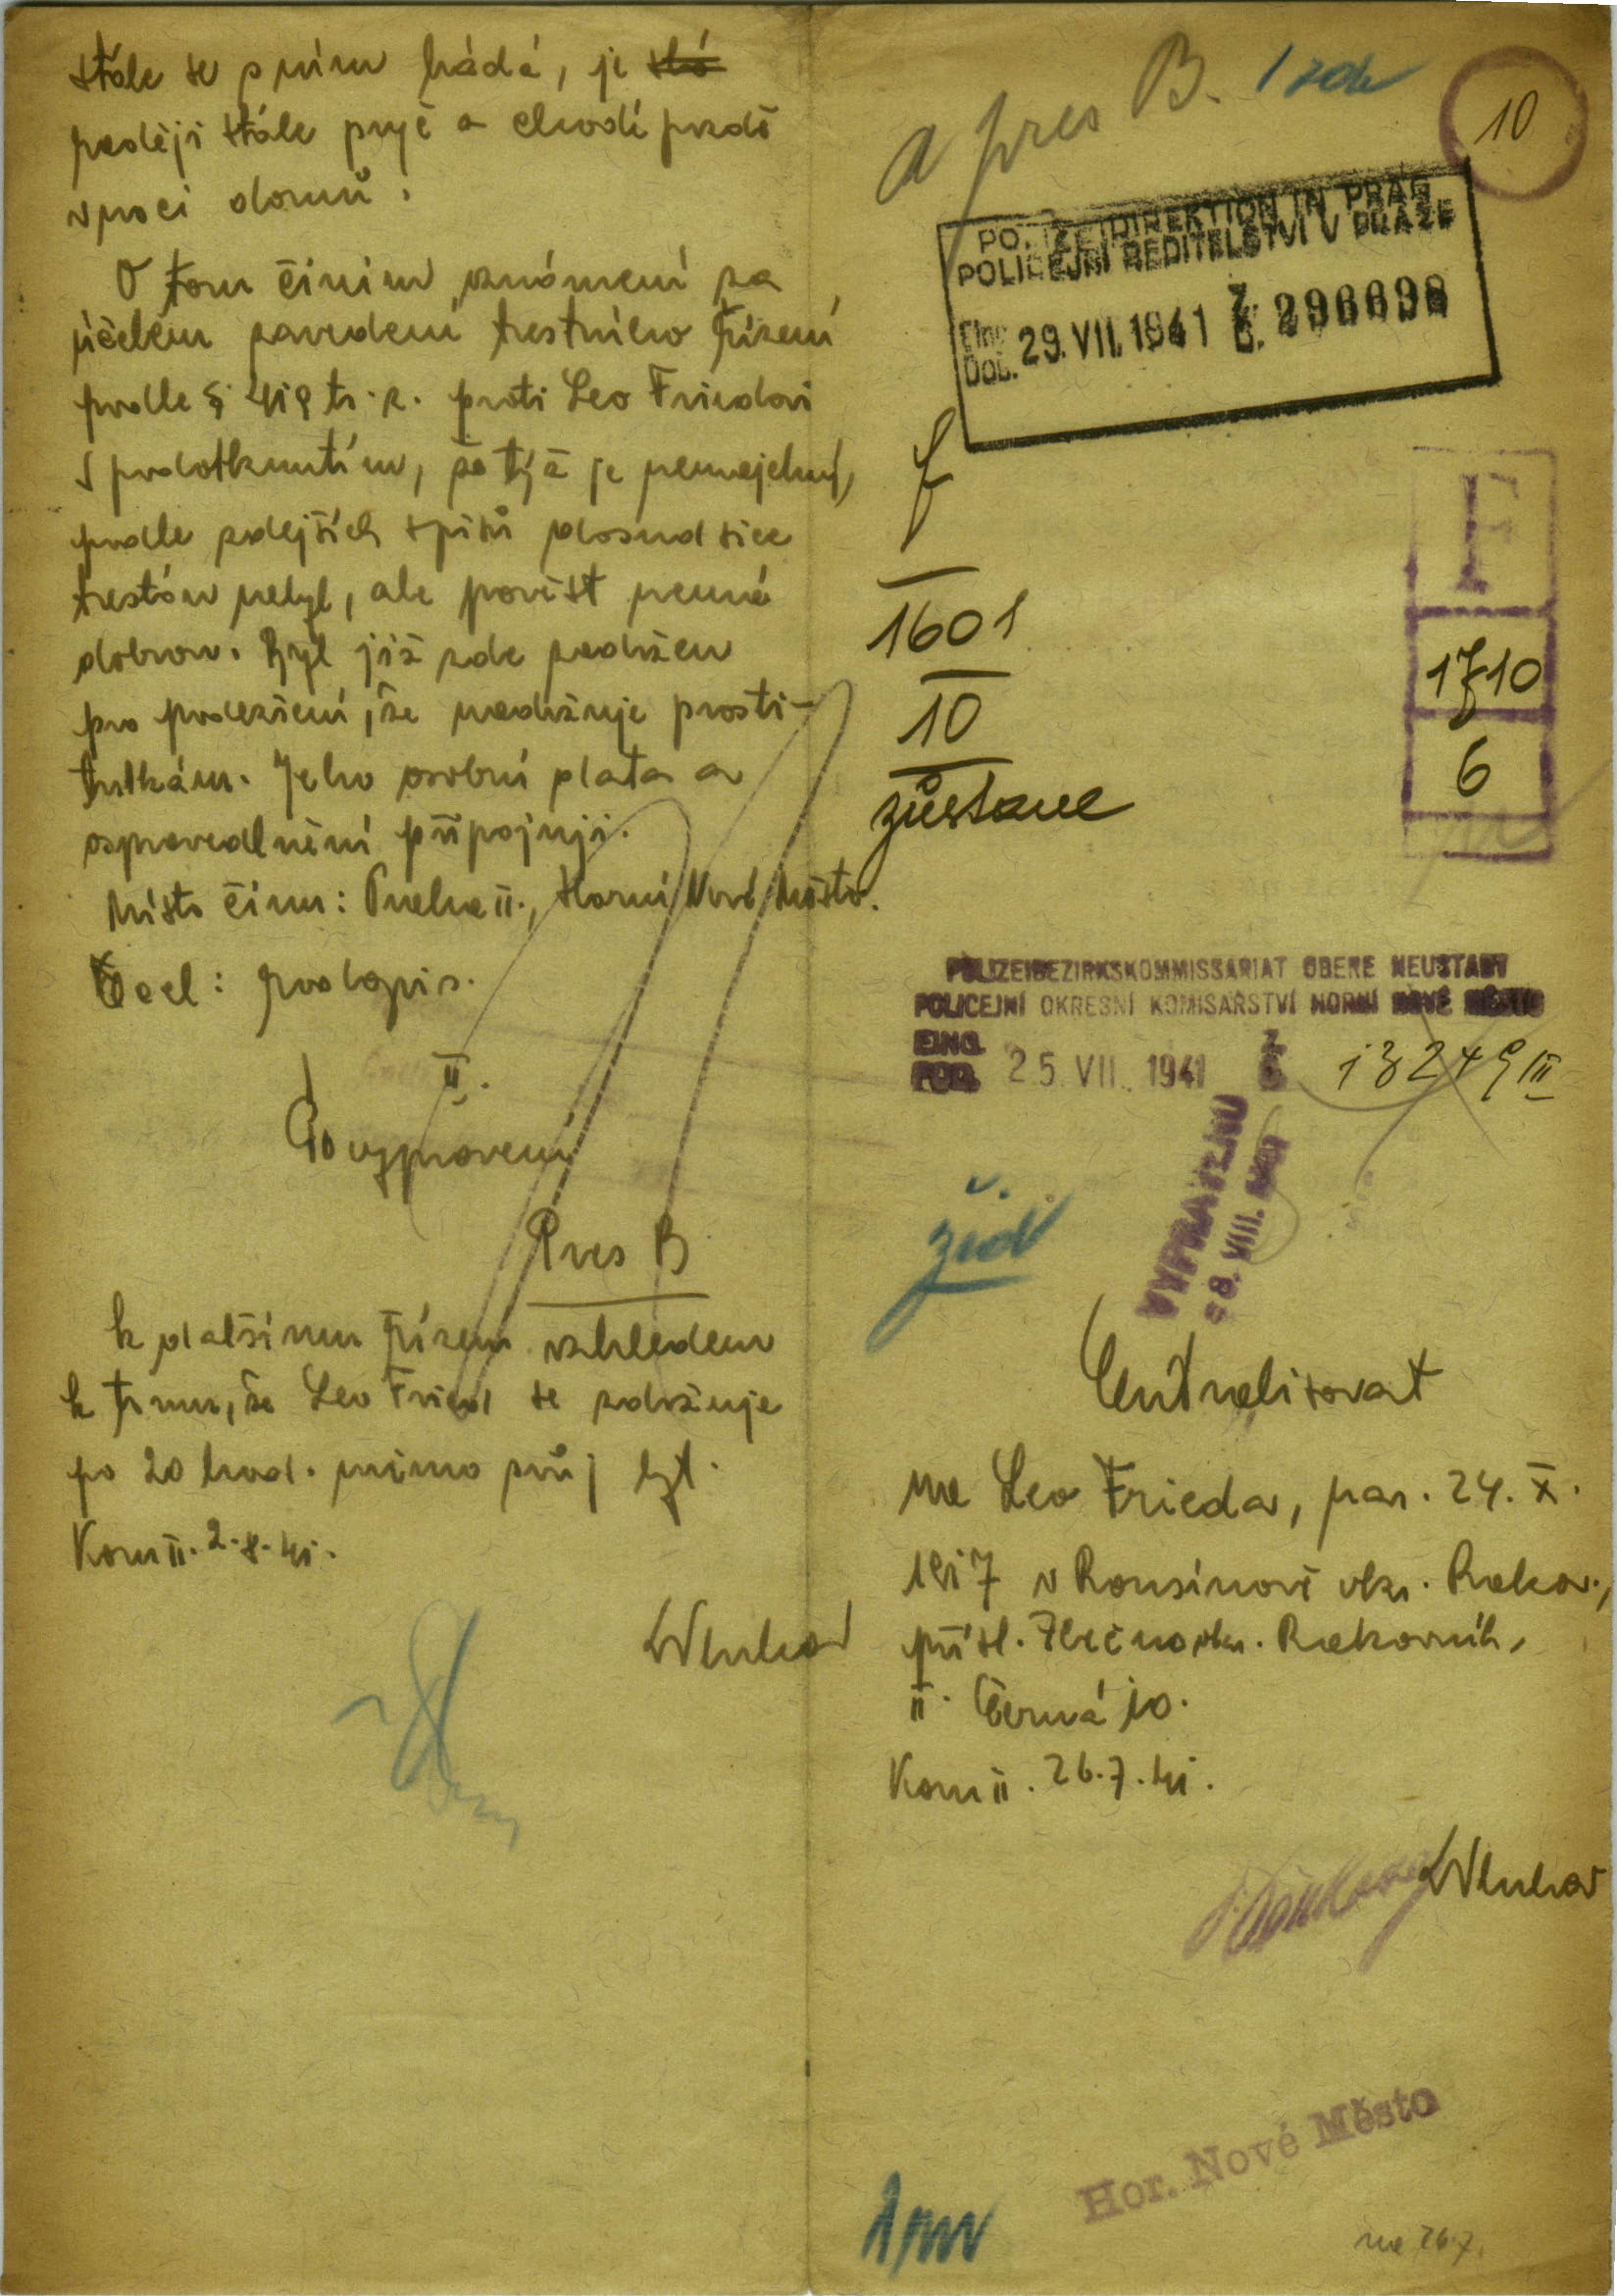 stále se s ním hádá, je
později stále pryč a chodí pozdě
v noci domů.
O tom činím oznámení za
účelem zavedení trestního řízení
podle § 419 tr. z. proti Leo Friedovi
s podotknutím, že týž je nemajetný,
podle zdejších spisů dosud sice
trestán nebyl, ale pověst nemá
dobrou. Byl již zde zadržen
pro podezření, že nadržuje prosti-
tutkám. Jeho osobní data a
ospravedlnění připojuji.
Místo činu: Praha II., Horní Nové Město.
Úč. el: podepis.
II.
Po vypravení
Pres B
k dalšímu řízení vzhledem
k tomu, že Leo Fried se zdržuje
po 20 hod. mimo svůj byt.
Kom II. 2.8.41.
a pres B. 1 zde
10
POLIZEIDIREKTION IN PRAG
POLICEJNÍ ŘEDITELSTVÍ V PRAZE
Eing.
Doš. 29. VII. 1941 Z. Č. 296698
f
1601
10
zůstane
F
1710
6
POLIZEIBEZIRKSKOMMISSARIAT OBERE NEUSTADT
POLICEJNÍ OKRESNÍ KOMISAŘSTVÍ HORNÍ NOVÉ MĚSTO
EING.
POD. 25. VII. 1941 Z Č 13249 III
VYPRAVENO
- 8. VIII. 1941
žid
Centralisovat
na Leo Frieda, nar. 24. X.
1917 v Rousínově okr. Rakov.,
přísl. Zbečno okr. Rakovník,
II. Černá 10.
Kom II. 26.7.41.
Hor. Nové Město
na 26.7.